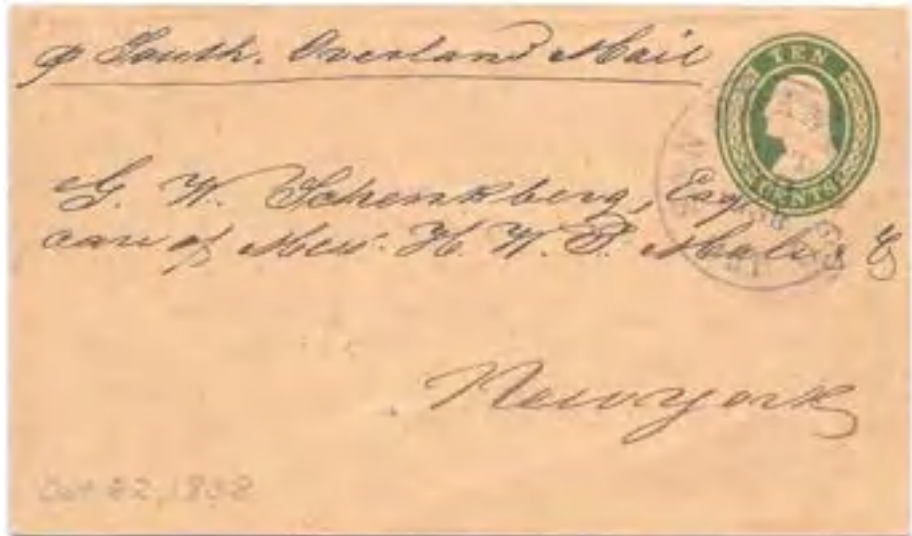 South. Overland Mail
TEN
CENTS
G. W. Schenkberg, Esqr
care of Mess. H. W. T. Mali & Co
New York
Oct 22, 1858